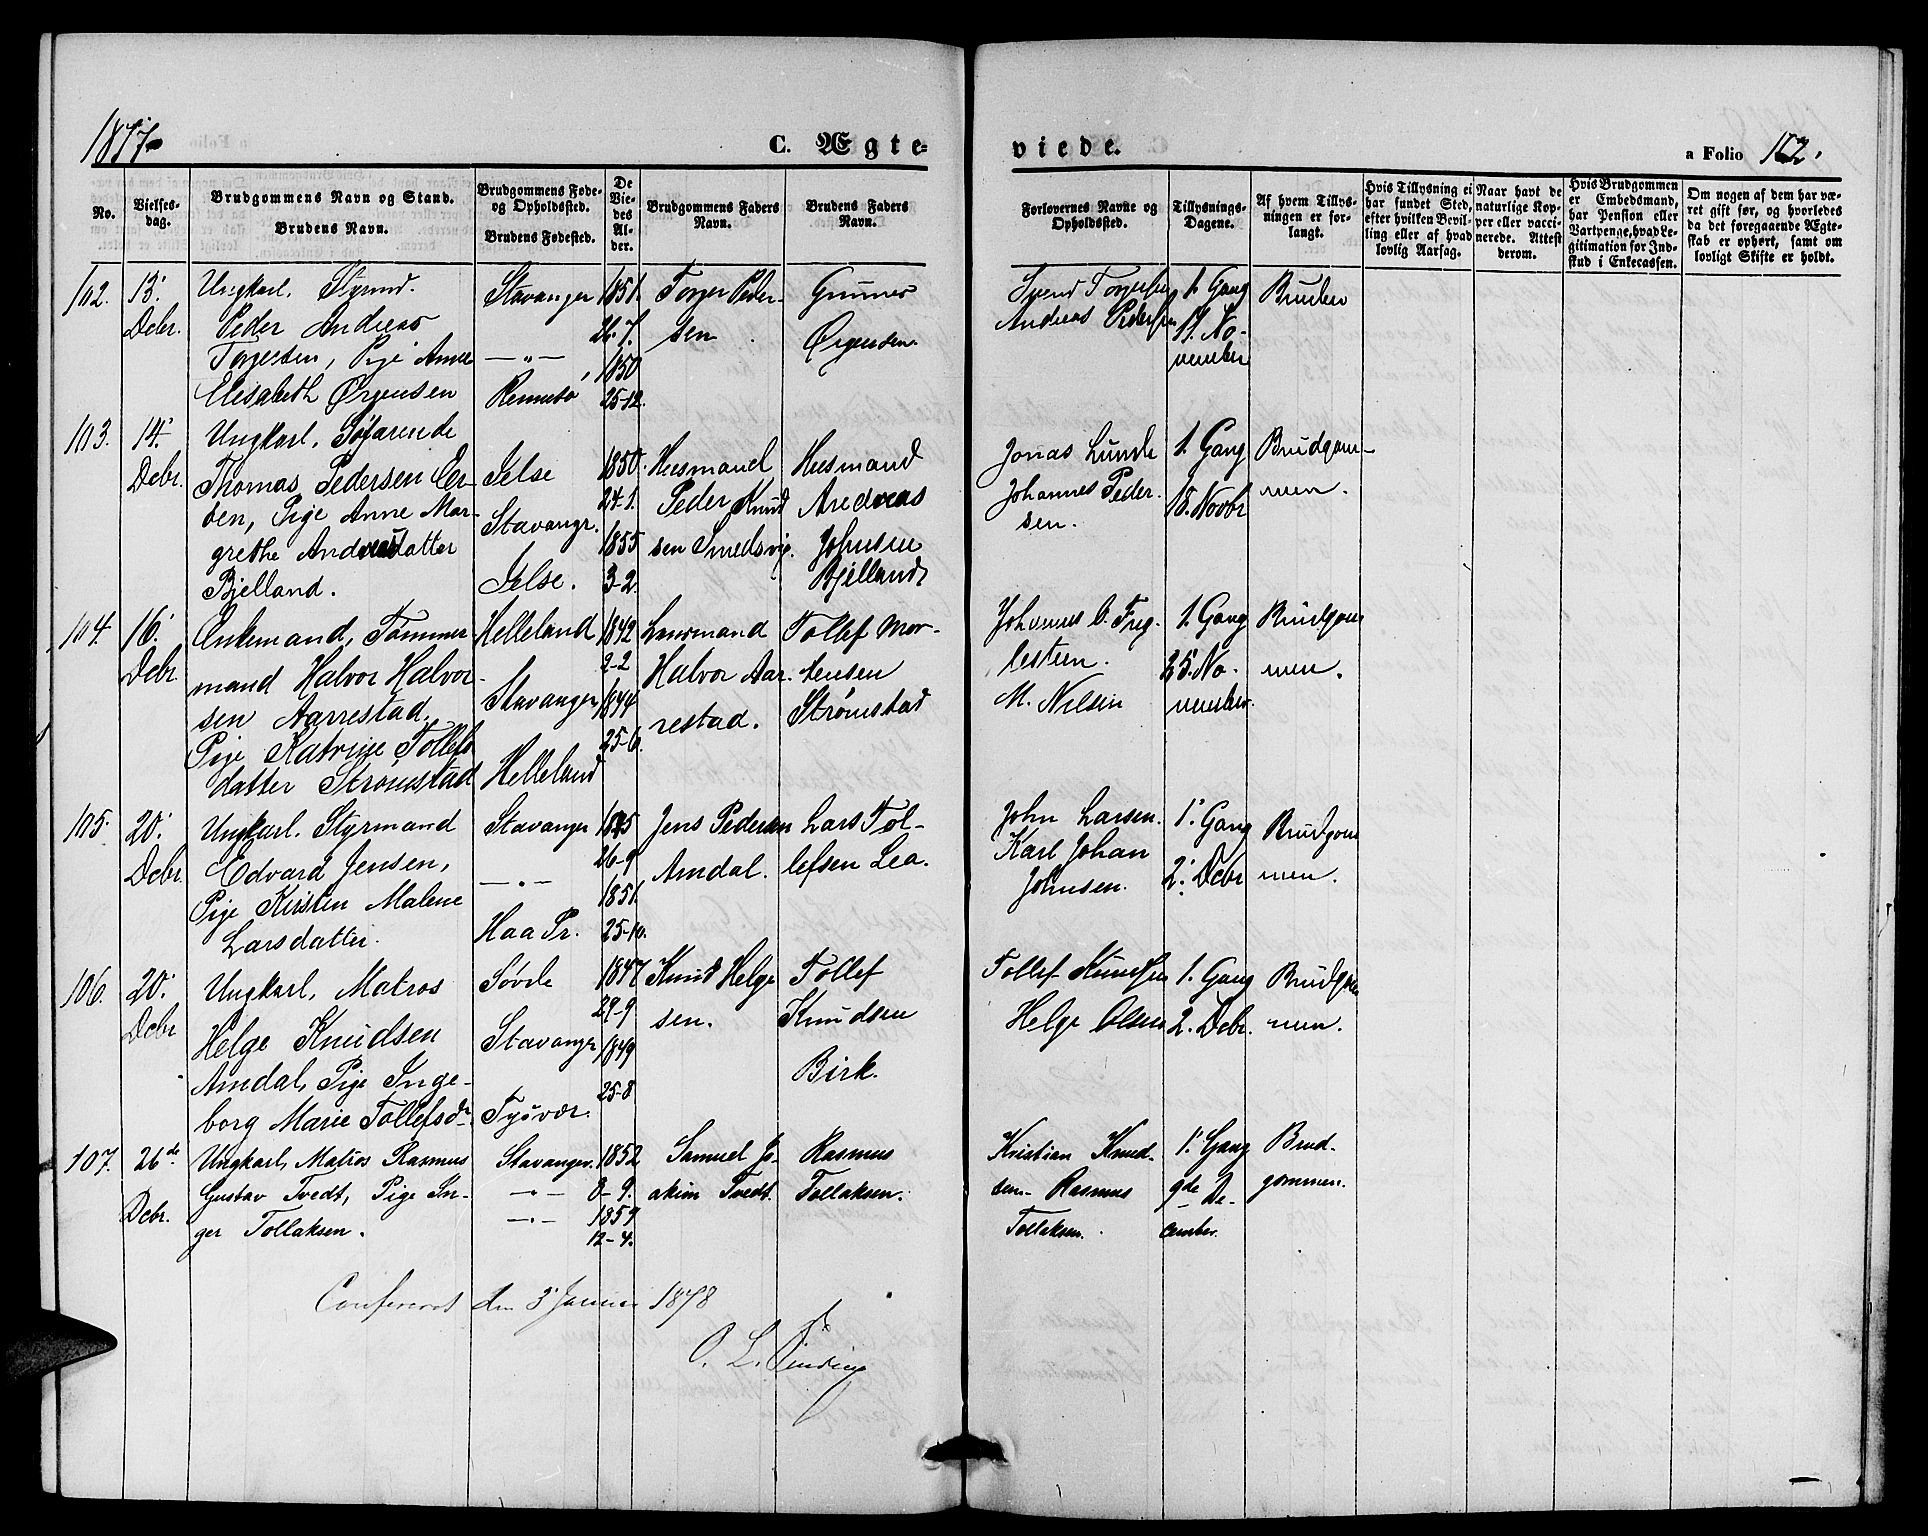 1877.
C. Ægte=
viede.
a Folio 162.
No.
Vielses-
dag.
Brudgommens Navn og Stand.
Brudens Navn.
Brudgommens Føde-
og Opholdssted.
Brudens Fødested.
De
Vie-
des
Al-
der.
Brudgommens Faders
Navn.
Brudens Faders
Navn.
Forlovernes Navne og
Opholdssted.
Tillysnings-
Dagene.
Af hvem Tillys-
ningen er for-
langt.
Hvis Tillysning ei
har fundet Sted,
efter hvilken Bevil-
ling eller af hvad
lovlig Aarsag.
Naar havt de
naturlige Kop-
per eller vacci-
nerede. Attest
derom.
Hvis Brudgommen
er Embedsmand,
har Pension eller
Vartpenge, hvad Le-
gitimation for Ind-
skud i Enkecassen.
Om nogen af dem har væ-
ret gift før, og hvorledes
da det foregaaende Ægte-
skab er ophørt, samt om
lovligt Skifte er holdt.
102.
13.
Decbr.
Ungkarl. Styrmd.
Peder Andreas
Torgersen, Pige Anne
Elisabeth Ørgensen
Stavanger
— „ —
Rennesø
1851.
26-7.
1850
25-12.
Torger Peder-
sen
Gunner
Ørgensen.
Svend Torgersen
Andreas Pedersen
1. Gang
11. No-
vember
Bruden
103.
14.
Decbr.
Ungkarl. Søfarende
Thomas Pedersen Er-
ben, Pige Anne Mar-
grethe Andreasdatter
Bjelland.
Jelse
Stavangr.
Jelse.
1850.
24-1.
1855
3-2.
Husmand
Peder Knud
sen Smedsvig.
Husmand
Andreas
Johnsen
Bjelland
Jonas Lunde
Johannes Peder-
sen.
1. Gang
18. Novbr
Brudgom-
men.
104.
16.
Decbr
Enkemand, Tømmer
mand Halvor Halvor-
sen Aarrestad.
Pige Katrine Tollefs
datter Strømstad
Helleland
Stavanger
Helleland
1842
2-2
1844
25-6.
Lensmand
Halvor Aar-
restad.
Tollef Mor-
tensen
Strømstad
Johannes O. Treg-
lesteen.
M. Nilsen
1. Gang
25. No-
vember.
Brudgom
men.
105.
20.
Decbr.
Ungkarl. Styrmand
Edvard Jensen,
Pige Kirsten Malene
Larsdatter.
Stavanger
— „ —
Haa Pr.
26-9
1851.
25-10.
Jens Pedersen
Amdal.
Lars Tol-
lefsen Lea.
John Larsen.
Karl Johan
Johnsen.
1. Gang
2. Decbr
Brudgom
men.
106.
20.
Decbr
Ungkarl, Matros
Helge Knudsen
Amdal, Pige Inge-
borg Marie Tollefsdr.
Søvde
Stavangr
Tysvær.
1847
29-9
1849
25-8
Knud Helge
sen.
Tollef
Knudsen
Birk.
Tollef Knudsen
Helge Olsen
1. Gang
2. Decbr.
Brudgom
men.
107.
26de
Decbr.
Ungkarl, Matros Rasmus
Gustav Tvedt, Pige In-
ger Tollaksen.
Stavanger.
— „ —
— „ —
1852
8-9.
12-4.
Samuel Jo-
akim Tvedt.
Rasmus
Tollaksen.
Kristian Knud-
sen. Rasmus
Tollaksen.
1. Gang
9de De-
cember.
Brud-
gommen.
Confereret den 3 Januar 1878
O. L. Sinding